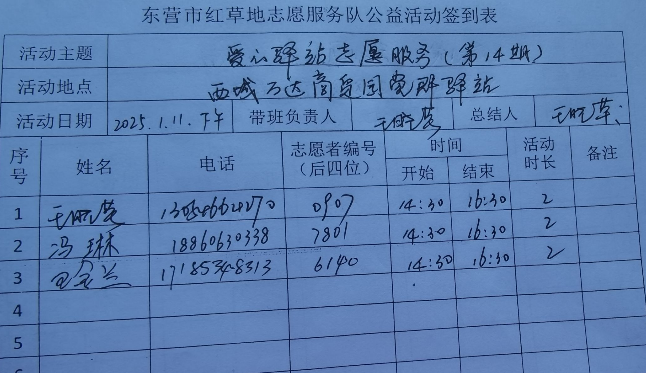 东营市红草地志愿服务队公益活动签到表
活动主题 爱心驿站志愿服务(第14期)
活动地点 西城万达商圈党群驿站
活动日期 2025.1.11.下午 带班负责人 总结人
序号 姓名 电话 志愿者编号(后四位) 时间 开始 结束 活动时长 备注
1 0907 14:30 16:30 2
2 冯琳 18860630338 7801 14:30 16:30 2
3 17185348313 6140 14:30 16:30 2
4
5